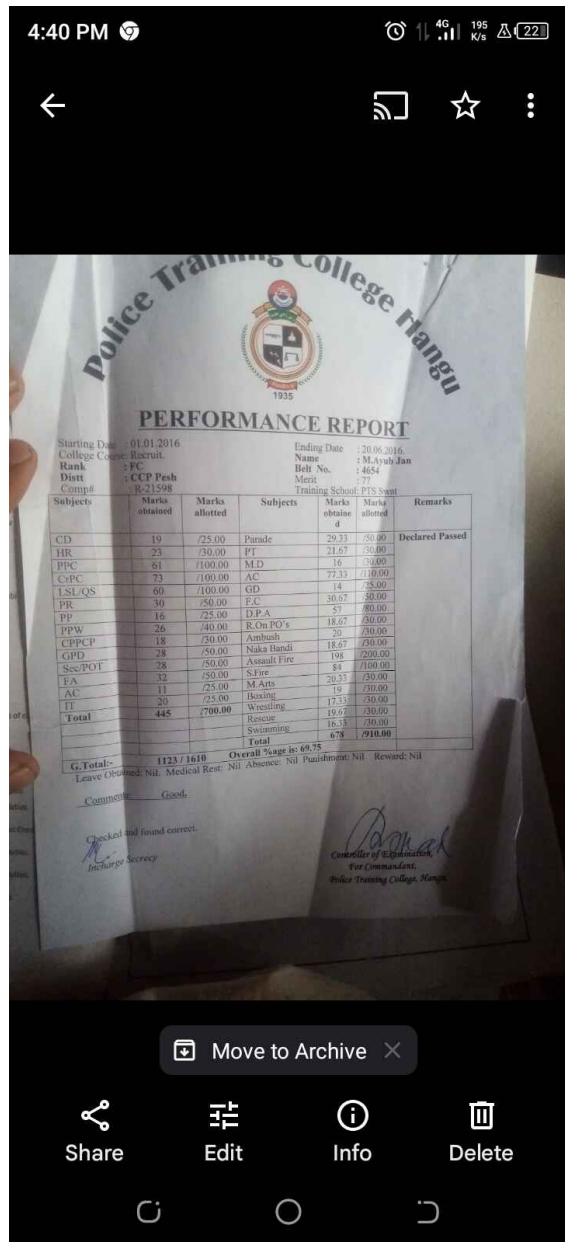 4:40 PM
4G 195 K/s 22
Police Training College Hangu
1935
PERFORMANCE REPORT
Starting Date : 01.01.2016 Ending Date : 20.06.2016.
College Course: Recruit. Name : M.Ayub Jan
Rank : FC Belt No. : 4654
Distt : CCP Pesh Merit : 77
Comp# : R-21598 Training School: PTS Swat
Subjects Marks obtained Marks allotted Subjects Marks obtained Marks allotted Remarks
CD 19 /25.00 Parade 29.33 /50.00 Declared Passed
HR 23 /30.00 PT 21.67 /30.00
PPC 61 /100.00 M.D 16 /30.00
CrPC 73 /100.00 AC 77.33 /110.00
LSL/QS 60 /100.00 GD 14 /25.00
PR 30 /50.00 F.C 30.67 /50.00
PP 16 /25.00 D.P.A 57 /80.00
PPW 26 /40.00 R.On PO's 18.67 /30.00
CPPCP 18 /30.00 Ambush 20 /30.00
GPD 28 /50.00 Naka Bandi 18.67 /30.00
Sec/POT 28 /50.00 Assault Fire 198 /200.00
FA 32 /50.00 S.Fire 84 /100.00
AC 11 /25.00 M.Arts 20.33 /30.00
IT 20 /25.00 Boxing 19 /30.00
Total 445 /700.00 Wrestling 17.33 /30.00
Rescue 19.67 /30.00
Swimming 16.33 /30.00
Total 678 /910.00
G.Total:- 1123 / 1610 Overall %age is: 69.75
Leave Obtained: Nil. Medical Rest: Nil Absence: Nil Punishment: Nil Reward: Nil
Comments: Good.
Checked and found correct.
Incharge Secrecy
Controller of Examination,
For Commandant,
Police Training College, Hangu.
Move to Archive
Share Edit Info Delete